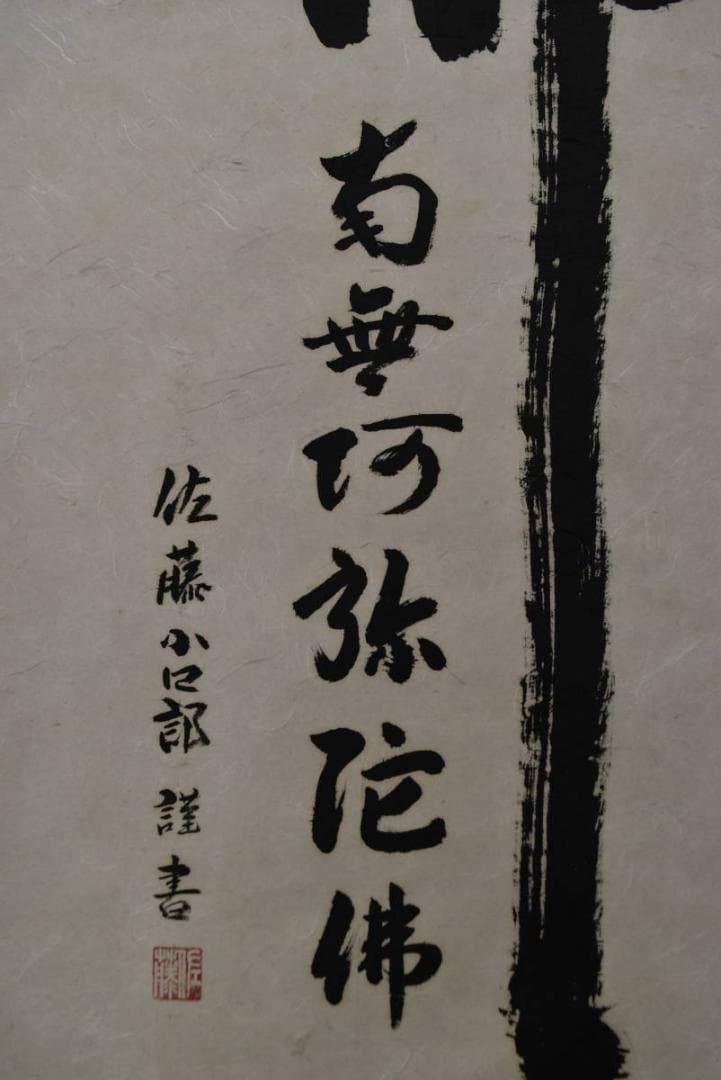 南無阿弥陀佛
佐藤小口郎 謹書
佐藤